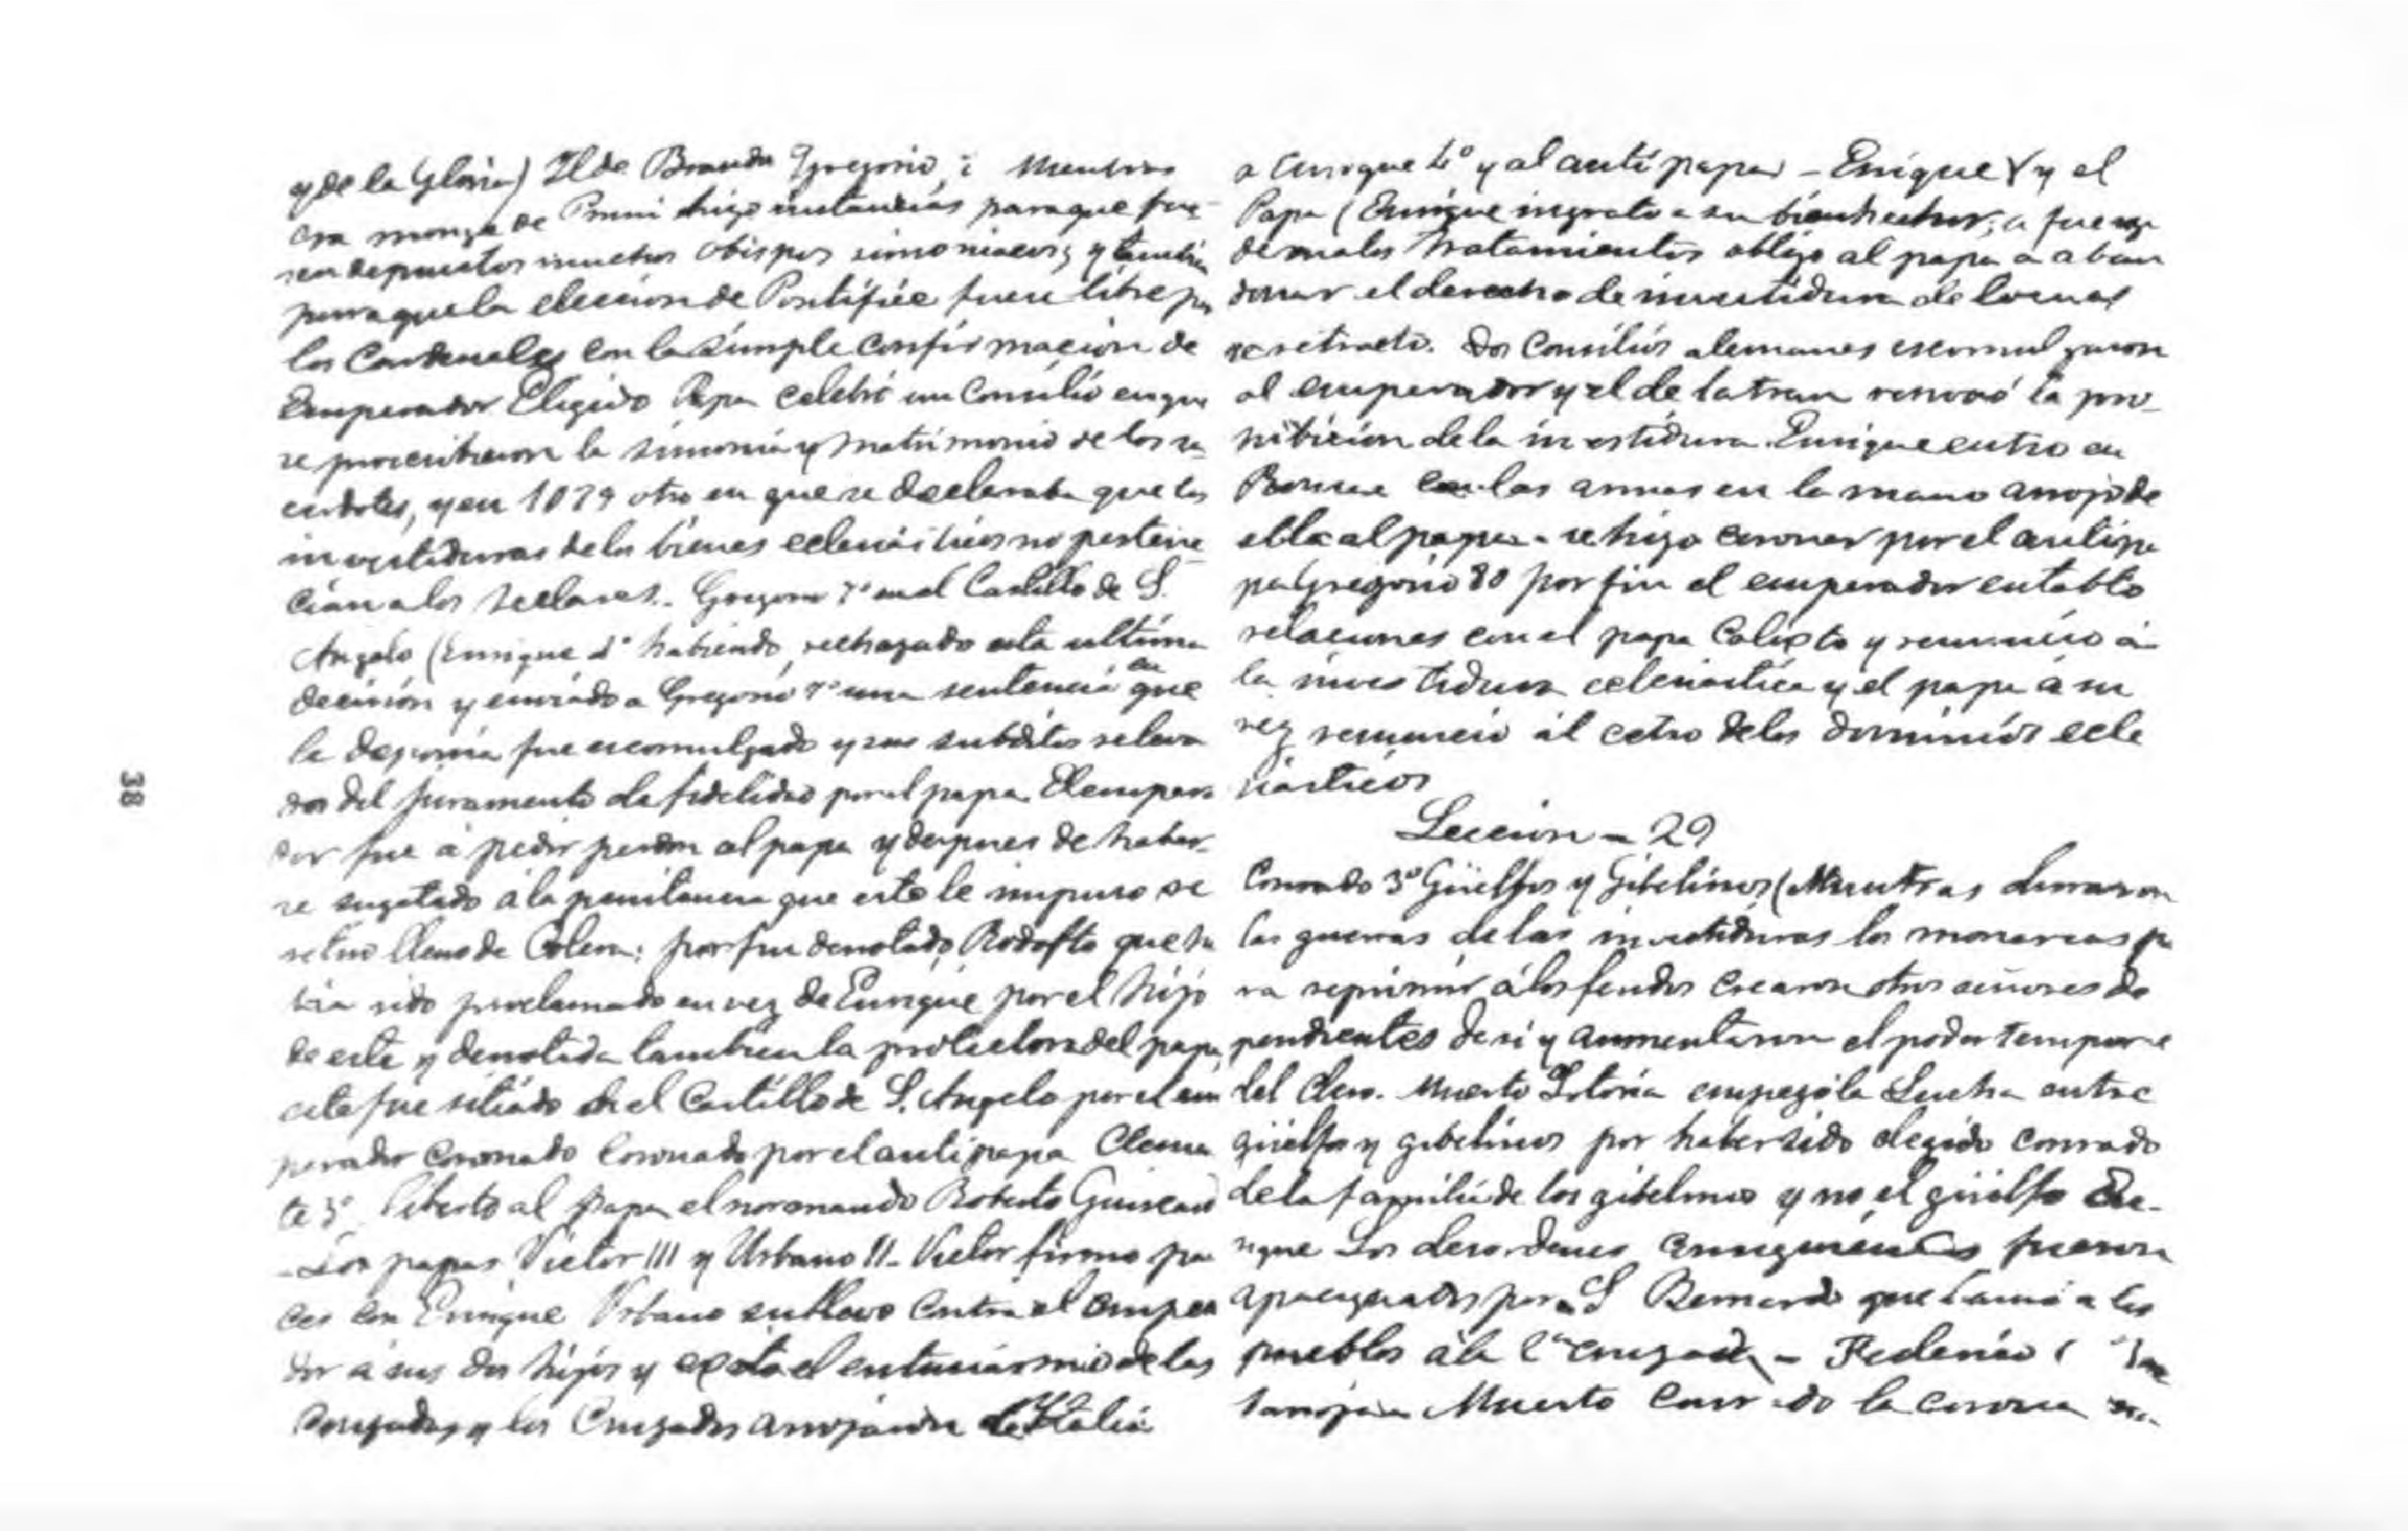 y de la Gloria) Ilde Brando Gregorio, Mientras
era monge de hizo instancias para que fue-
sen depuestos muchos obispos simoniacos; y tambien
para que la eleccion de Pontifice fuera libre por
los Cardenales con la simple confirmacion de
Emperador Eligido Papa celebró un Consilio en que
se proscribieron la simonia y matrimonio de los sa
cerdotes, y en 1079 otro en que se declaraba que las
investiduras de los bienes eclesiásticos no pertene-
cian a los seclares. Gregorio 7º en el Castillo de S.
Angelo (Enrique 4º habiendo rechazado esta ultima
decision y enviado a Gregorio 7º una sentencia en que
le deponia fue escomulgado y sus subditos releva
dos del juramento de fidelidad por el papa. El empera
dor fue á pedir perdon al papa y despues de haber-
se sugetado á la penitencia que este le impuso se
retiro lleno de Colera; por fin derrotado Rodolfo que ha
bia sido proclamado en vez de Enrique por el hijo
de este y derrotada tambien la protectora del papa
este fue sitiado en el Castillo de S. Angelo por el em
perador Coronado Coronado por el anti papa Cleme
te 3º liberto al papa el normando Roberto Guiscard
- Los papas Victor III y Urbano II - Victor firmo pa
ces con Enrique Urbano sublevo contra el empera
dor a sus dos hijos y exito el entusiasmo de las
Cruzadas y los Cruzados arrojaron de Italia
a Enrique 4º y al anti papa - Enrique V y el
Papa (Enrique ingrato a su bienhechor, a fuerza
de malos tratamientos obligo al papa a aban
donar el derecho de investidura de lo cual
se retracto. Dos Consilios alemanes escomulgaron
al emperador y el de latran renovó la pro-
hibicion de la investidura. Enrique entro en
Roma con las armas en la mano arrojo de
ella al papa - se hizo coronar por el antipa
pa Gregorio 8º por fin el emperador entablo
relaciones con el papa Calixto y renuncio á
la investidura eclesiastica y el papa á su
vez renuncio al cetro de los dominios ecle
siásticos
Leccion = 29
Conrado 3º Güelfos y Gibelinos (Mientras duraron
las guerras de las investiduras los monarcas pa
ra reprimir á los feudos crearon otros señores de
pendientes de si y aumentaron el poder temporal
del Clero. Muerto Lotário empezó la Lucha entre
güelfos y gibelinos por haber sido elegido conrado
de la familia de los gibelinos y no el güelfo En-
rique Los desordenes fueron
apaciguados por S Bernardo que llamó a los
pueblos á la 2ª cruzada - Federico 1
Muerto Conrado la corona
38